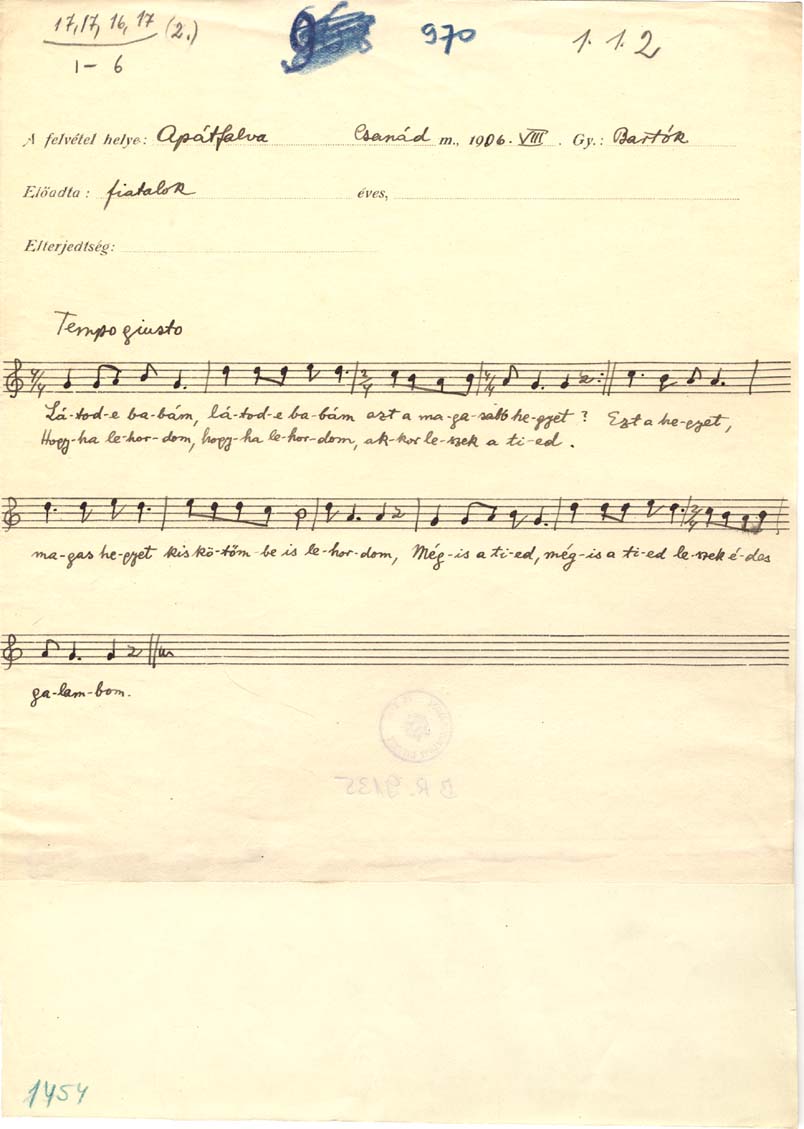 17, 17, 16, 17 (2.)
1-6
970
1. 1. 2
A felvétel helye: Apátfalva Csanád m., 1906. VIII. Gy.: Bartók
Előadta: fiatalok éves,
Elterjedtség:
Tempo giusto
4/4 2/4 4/4
Lá-tod-e ba-bám, lá-tod-e ba-bám azt a ma-ga-sabb he-gyet? Ezt a he-gyet,
Hogy-ha le-hor-dom, hogy-ha le-hor-dom, ak-kor le-szek a ti-ed.
2/4
ma-gas he-gyet kis kö-tőm-be is le-hor-dom, Még-is a ti-ed, még-is a ti-ed le-szek é-des
ga-lam-bom.
B R. 9135
1454